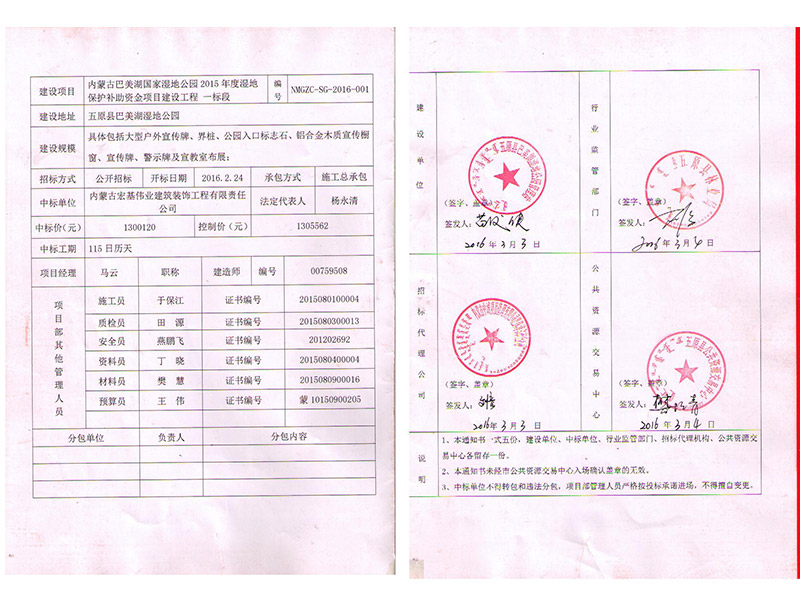 建设项目 内蒙古巴美湖国家湿地公园2015年度湿地 编 NMGZC-SG-2016-001
保护补助资金项目建设工程 一标段 号
建设地址 五原县巴美湖湿地公园
建设规模 具体包括大型户外宣传牌、界桩、公园入口标志石、铝合金木质宣传橱
窗、宣传牌、警示牌及宣教室布展;
招标方式 公开招标 开标日期 2016.2.24 承包方式 施工总承包
中标单位 内蒙古宏基伟业建筑装饰工程有限责任 法定代表人 杨永清
公司
中标价(元) 1300120 控制价(元) 1305562
中标工期 115日历天
项目经理 马云 职称 建造师 编号 00759508
项目部其他管理人员
施工员 于保江 证书编号 2015080100004
质检员 田 源 证书编号 2015080300013
安全员 燕鹏飞 证书编号 201202692
资料员 丁 晓 证书编号 2015080400004
材料员 樊 慧 证书编号 2015080900016
预算员 王 伟 证书编号 蒙10150900205
分包单位 负责人 分包内容
建设单位
(签字、盖章)
签发人:
2016年3月3日
行业监管部门
(签字、盖章)
签发人:
2016年3月4日
招标代理公司
(签字、盖章)
签发人:
2016年3月3日
公共资源交易中心
五原县公共资源交易中心
(签字、盖章)
签发人:
2016年3月4日
说明
1、本通知书一式五份,建设单位、中标单位、行业监管部门、招标代理机构、公共资源交
易中心各留存一份。
2、本通知书未经市公共资源交易中心入场确认盖章的无效。
3、中标单位不得转包和违法分包,项目部管理人员严格按投标承诺进场,不得擅自变更。